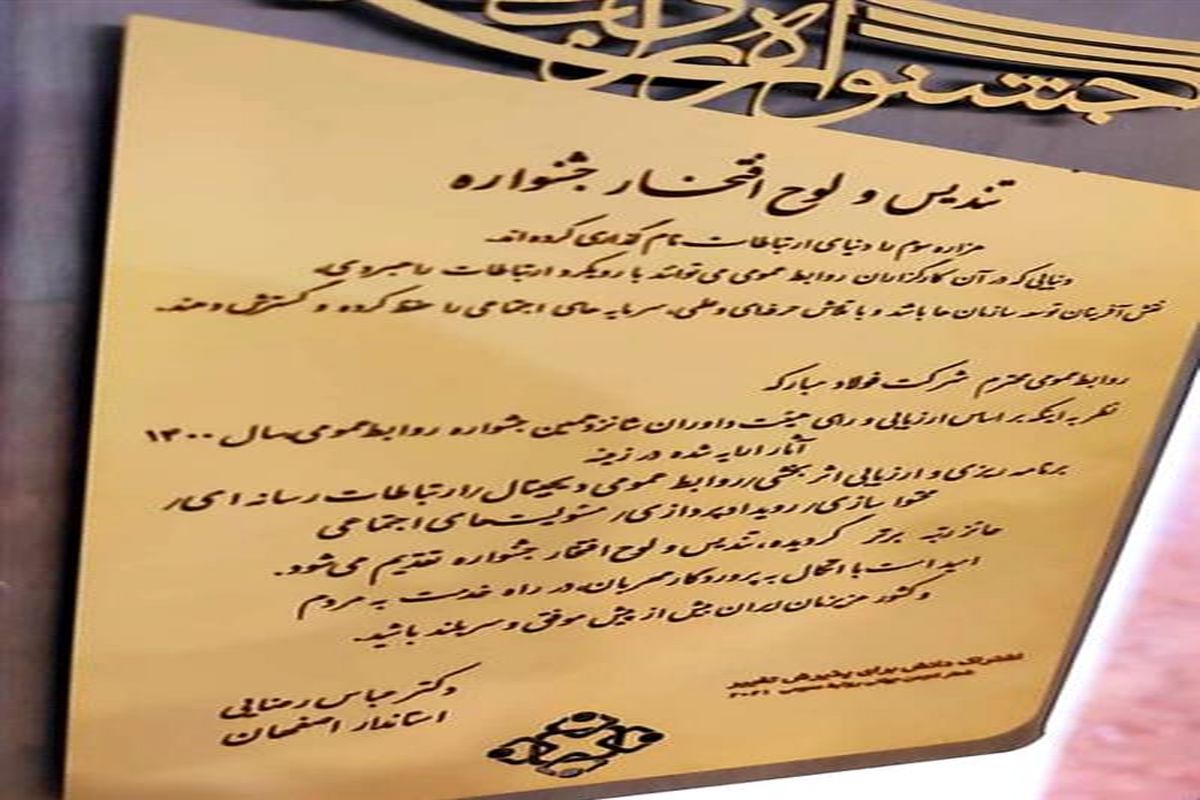 جشنواره
تندیس و لوح افتخار جشنواره
هزاره سوم را دنیای ارتباطات نام گذاری کرده اند.
دنیایی که در آن کارگزاران روابط عمومی می‌توانند با رویکرد ارتباطات راهبردی،
نقش آفرینان توسعه سازمان ها باشند و با تلاش حرفه‌ای و علمی، سرمایه های اجتماعی را حفظ کرده و گسترش دهند.
روابط عمومی محترم شرکت فولاد مبارکه
نظر به اینکه بر اساس ارزیابی و رای هیئت داوران شانزدهمین جشنواره روابط عمومی سال ۱۴۰۰
آثار ارایه شده در زمینه
برنامه ریزی و ارزیابی اثر بخشی/روابط عمومی دیجیتال/ارتباطات رسانه ای/
محتوا سازی/رویداد پردازی/مسئولیت‌های اجتماعی
حائز رتبه برتر گردیده، تندیس و لوح افتخار جشنواره تقدیم می‌شود.
امید است با اتکال به پروردگار مهربان، در راه خدمت به مردم
و کشور عزیزمان ایران بیش از پیش موفق و سربلند باشید.
دکتر عباس رضایی
استاندار اصفهان
اشتراک دانش برای پذیرش تغییر
۲۰۲۱